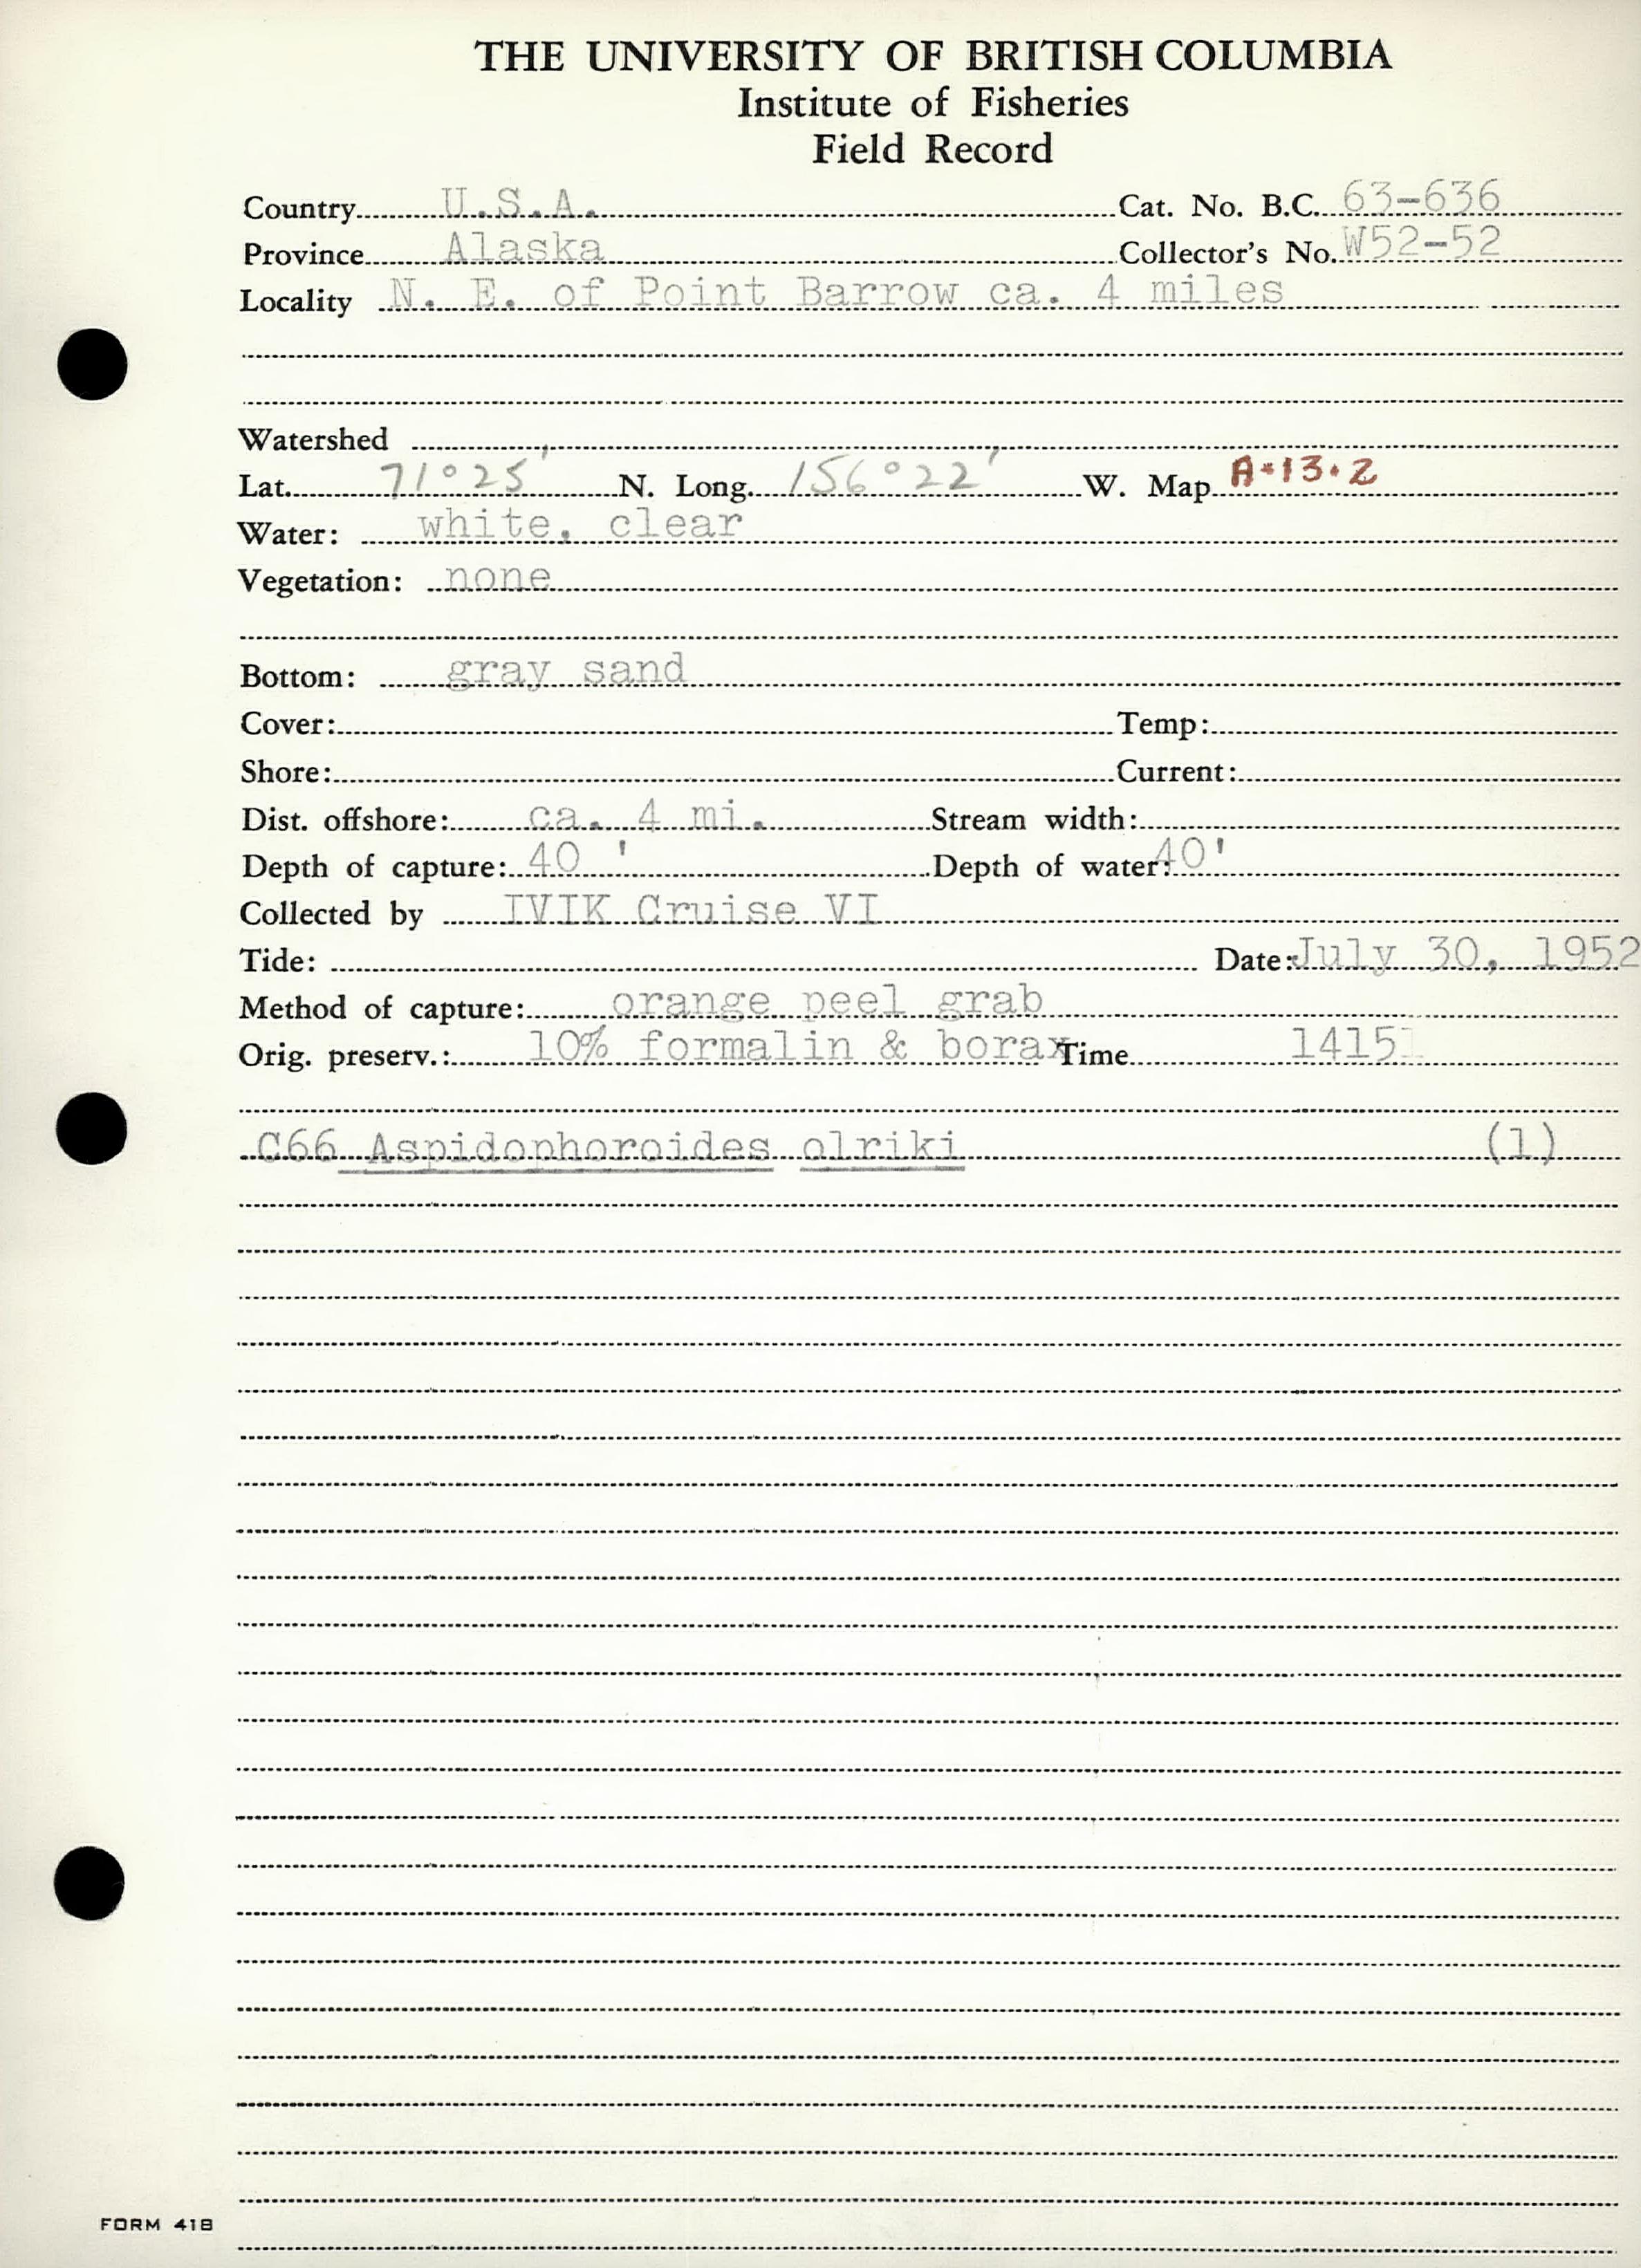 THE UNIVERSITY OF BRITISH COLUMBIA
Institute of Fisheries
Field Record
Country U.S.A. Cat. No. B.C. 63-636
Province Alaska Collector's No. W52-52
Locality N. E. of Point Barrow ca. 4 miles
Watershed
Lat. 71°25' N. Long. 156°22' W. Map A-13-2
Water: white, clear
Vegetation: none
Bottom: gray sand
Cover: Temp:
Shore: Current:
Dist. offshore: ca. 4 mi. Stream width:
Depth of capture: 40 ' Depth of water: 40'
Collected by IVIK Cruise VI
Tide: Date: July 30, 1952
Method of capture: orange peel grab
Orig. preserv.: 10% formalin & borax Time 1415
C66 Aspidophoroides olriki (1)
FORM 41B